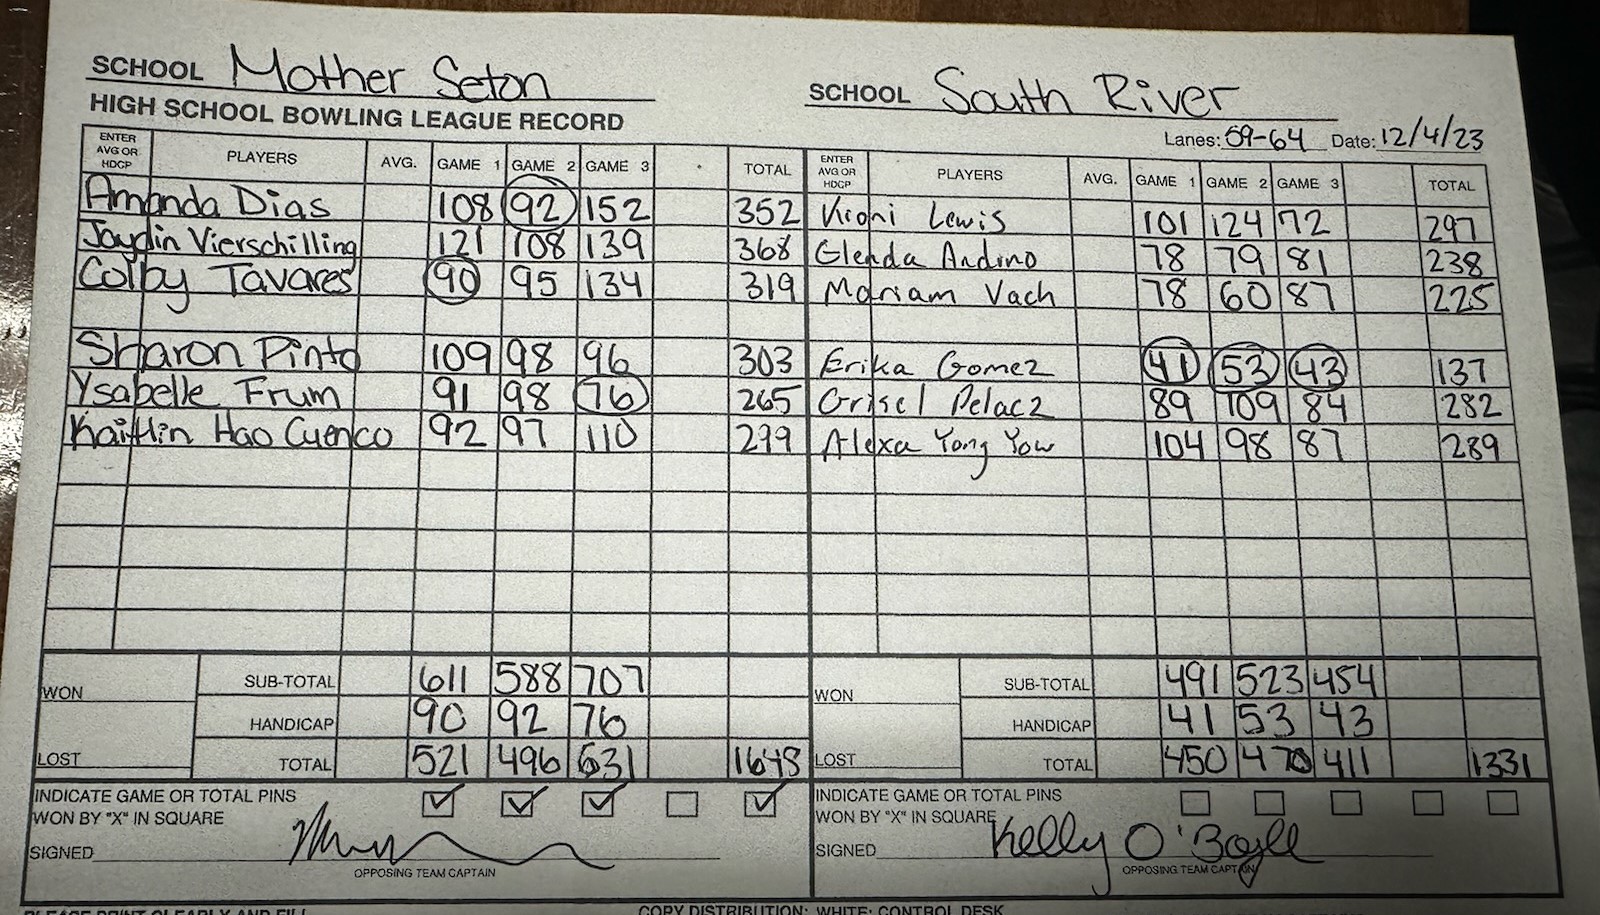 SCHOOL Mother Seton SCHOOL South River
HIGH SCHOOL BOWLING LEAGUE RECORD Lanes: 59-64 Date: 12/4/23
ENTER AVG OR HDCP PLAYERS AVG. GAME 1 GAME 2 GAME 3 TOTAL ENTER AVG OR HDCP PLAYERS AVG. GAME 1 GAME 2 GAME 3 TOTAL
Amanda Dias 108 92 152 352 Kioni Lewis 101 124 72 297
Jaydin Vierschilling 121 108 139 368 Glenda Andino 78 79 81 238
Colby Tavares 90 95 134 319 Mariam Vach 78 60 87 225
Sharon Pinto 109 98 96 303 Erika Gomez 41 53 43 137
Ysabelle Frum 91 98 76 265 Grisel Pelaez 89 109 84 282
Kaitlin Hao Cuenco 92 97 110 299 Alexa Yong Yow 104 98 87 289
WON SUB-TOTAL 611 588 707 WON SUB-TOTAL 491 523 454
HANDICAP 90 92 76 HANDICAP 41 53 43
LOST TOTAL 521 496 631 1648 LOST TOTAL 450 470 411 1331
INDICATE GAME OR TOTAL PINS INDICATE GAME OR TOTAL PINS
WON BY "X" IN SQUARE WON BY "X" IN SQUARE
SIGNED SIGNED Kelly O'Boyle
OPPOSING TEAM CAPTAIN OPPOSING TEAM CAPTAIN
PLEASE PRINT CLEARLY AND FILL COPY DISTRIBUTION: WHITE: CONTROL DESK